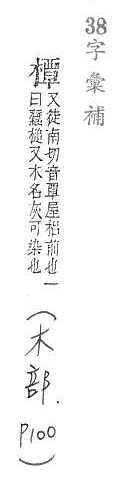 38字彙補
橝
又徒南切音覃屋梠前也一
曰蠶槌又木名灰可染也
(木部.
P100)